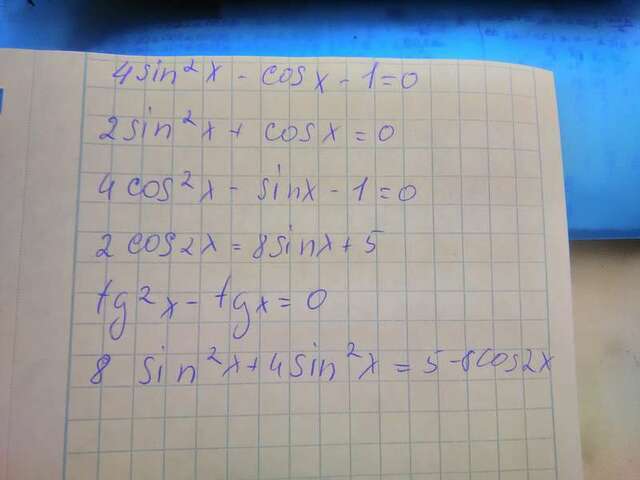 4sin²x - cosx - 1=0
2sin²x + cosx = 0
4cos²x - sinx - 1=0
2cos2x = 8sinx+5
tg²x - tgx = 0
8 sin²x+4sin²x = 5-8cos2x